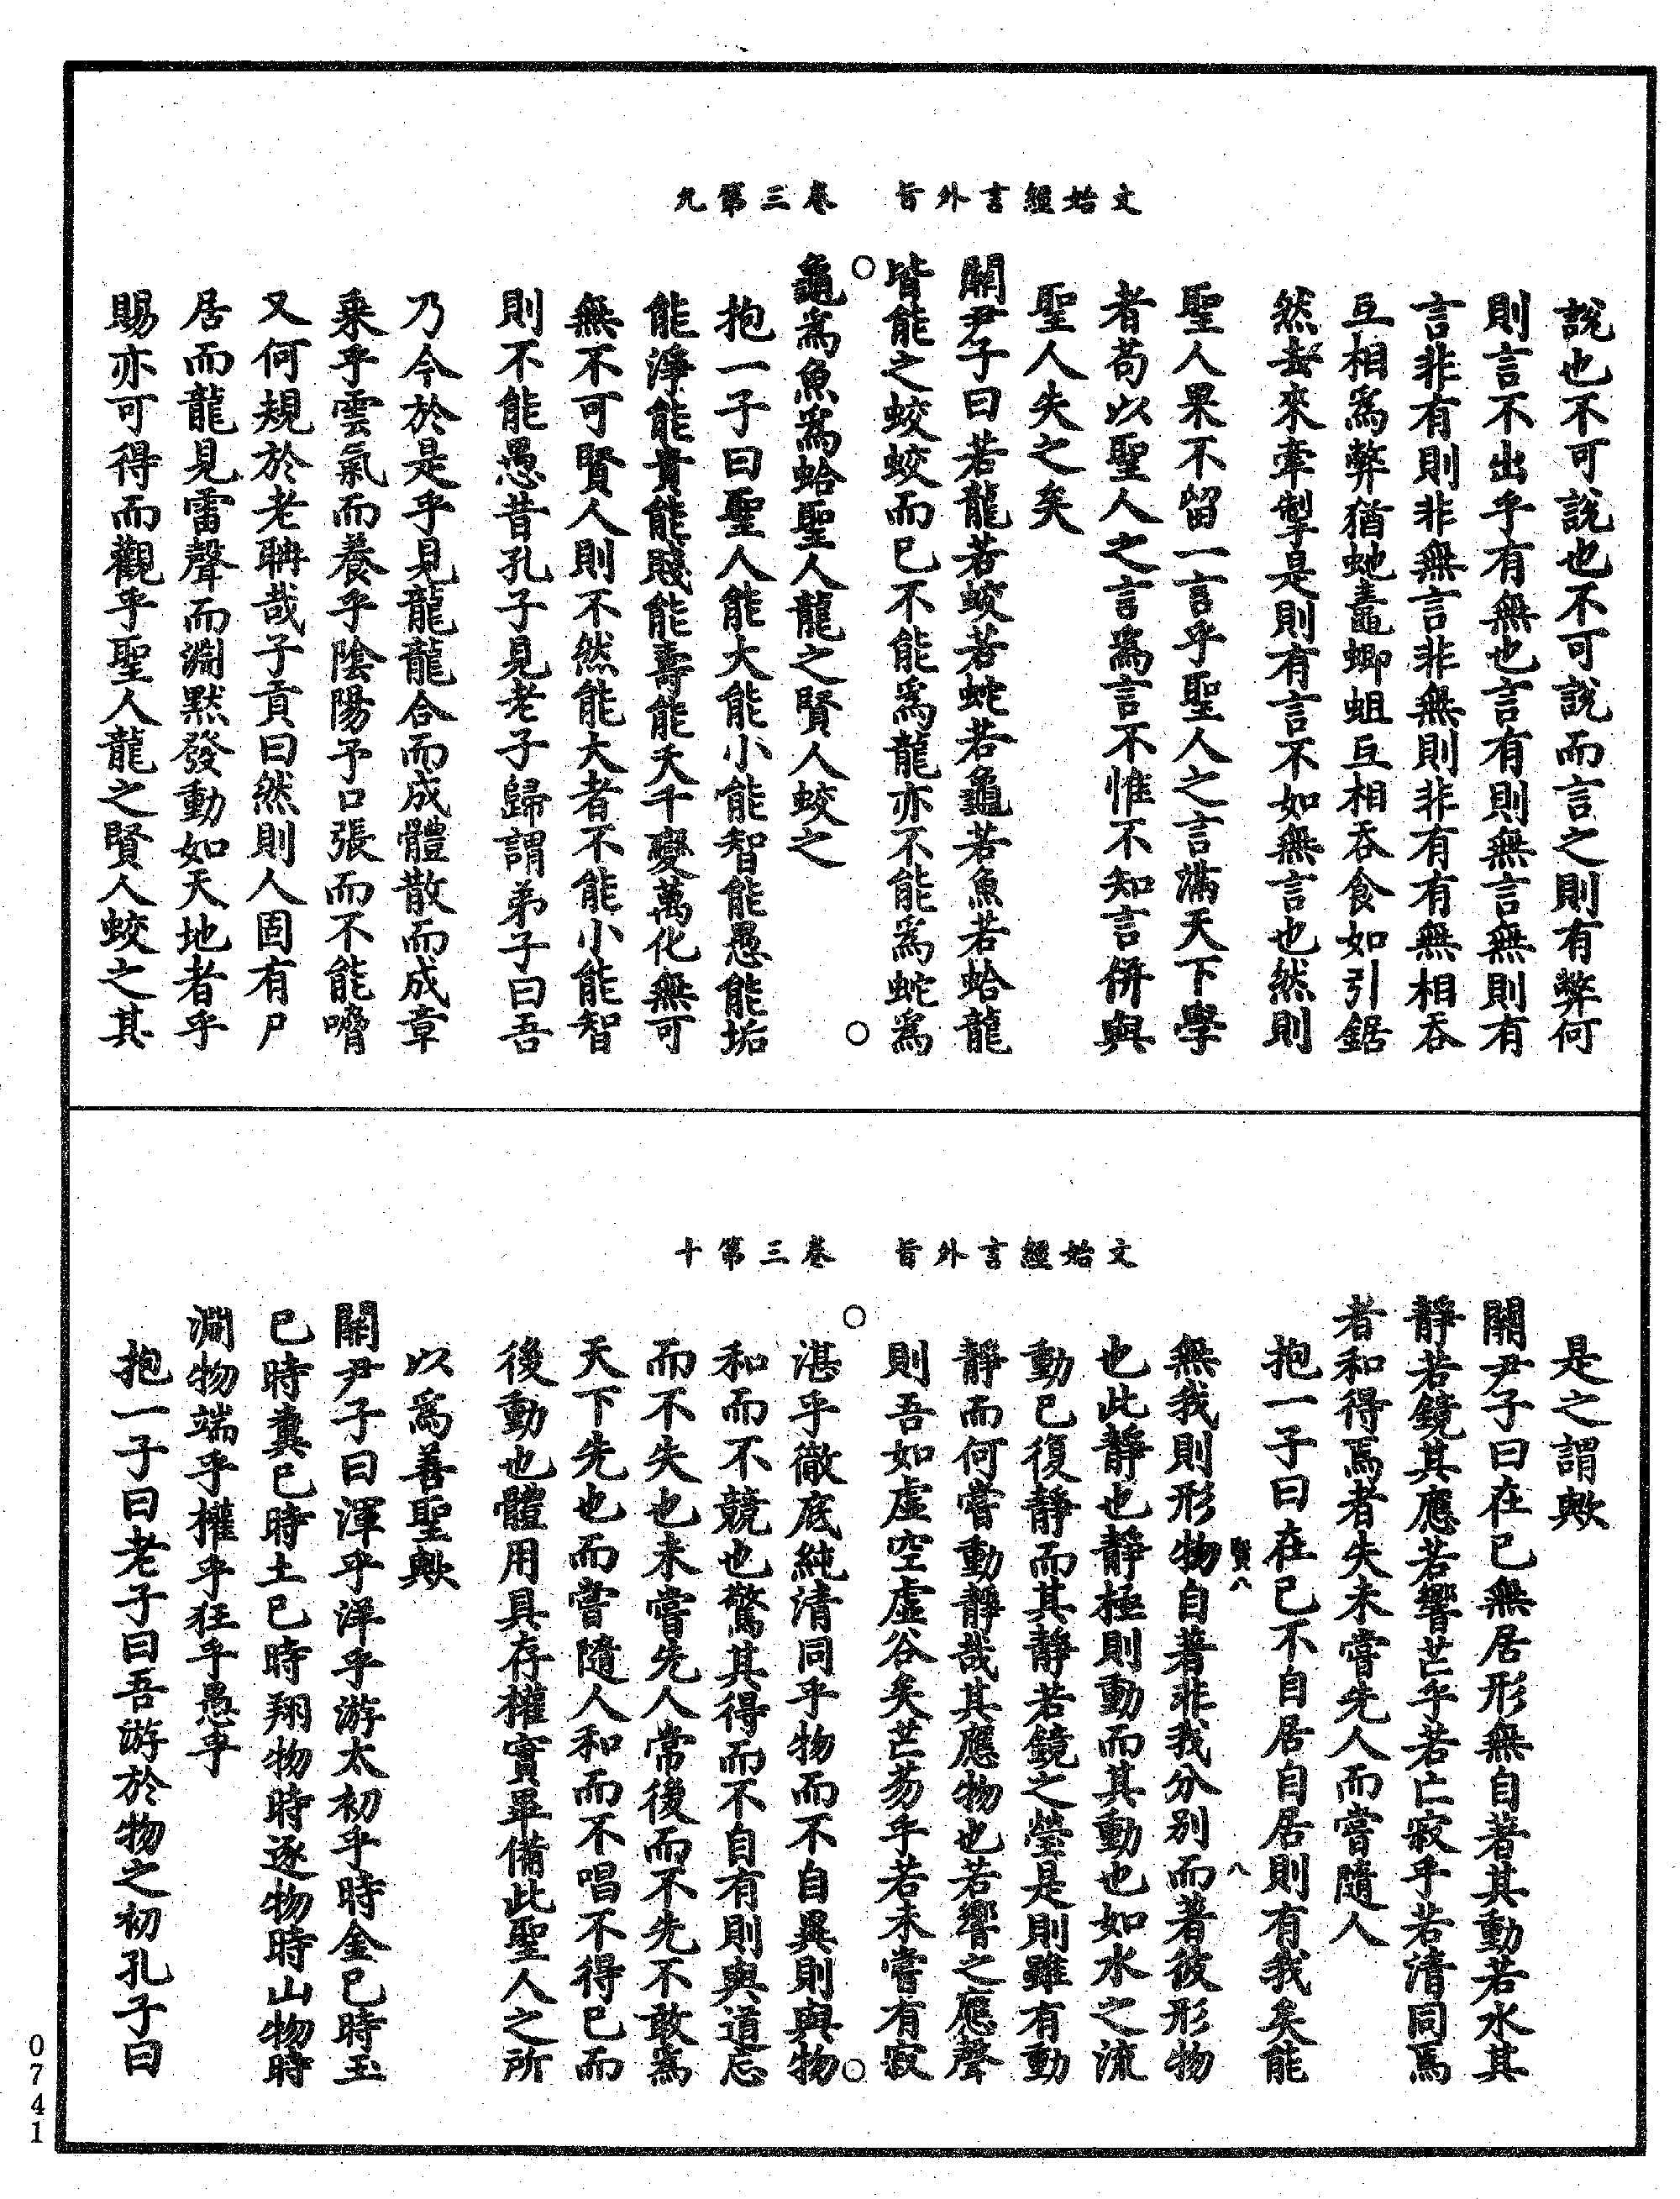 文始經言外旨　卷三第九
說也不可說也不可說而言之則有弊何
則言不出乎有無也言有則無言無則有
言非有則非無言非無則非有有無相吞
互相爲弊猶虵鼃蝍蛆互相吞食如引鋸
然去來牽掣是則有言不如無言也然則
聖人果不留一言乎聖人之言滿天下學
者苟以聖人之言爲言不惟不知言併與
聖人失之矣
關尹子曰若龍若蛟若蛇若龜若魚若蛤龍
皆能之蛟蛟而已不能爲龍亦不能爲蛇爲
龜爲魚爲蛤聖人龍之賢人蛟之
抱一子曰聖人能大能小能智能愚能垢
能淨能貴能賤能壽能夭千變萬化無可
無不可賢人則不然能大者不能小能智
則不能愚昔孔子見老子歸謂弟子曰吾
乃今於是乎見龍龍合而成體散而成章
乘乎雲氣而養乎陰陽予口張而不能嗋
又何規於老聃哉子貢曰然則人固有尸
居而龍見雷聲而淵默發動如天地者乎
賜亦可得而觀乎聖人龍之賢人蛟之其
文始經言外旨　卷三第十
是之謂歟
關尹子曰在己無居形無自著其動若水其
靜若鏡其應若響芒乎若亡寂乎若清同焉
者和得焉者失未嘗先人而嘗隨人
抱一子曰在己不自居自居則有我矣能
無我則形物自著非我分别而著彼形物
也此靜也靜極則動而其動也如水之流
動已復靜而其靜若鏡之瑩是則雖有動
靜而何嘗動靜哉其應物也若響之應聲
則吾如虛空虛谷矣芒芴乎若未嘗有寂
湛乎徹底純清同乎物而不自異則與物
和而不競也驚其得而不自有則與道忘
而不失也未嘗先人常後而不先不敢爲
天下先也而嘗隨人和而不唱不得已而
後動也體用具存權實畢備此聖人之所
以爲善聖歟
關尹子曰渾乎洋乎游太初乎時金已時玉
已時糞已時土已時翔物時逐物時山物時
淵物端乎權乎狂乎愚乎
抱一子曰老子曰吾游於物之初孔子曰
賢八
八
0741